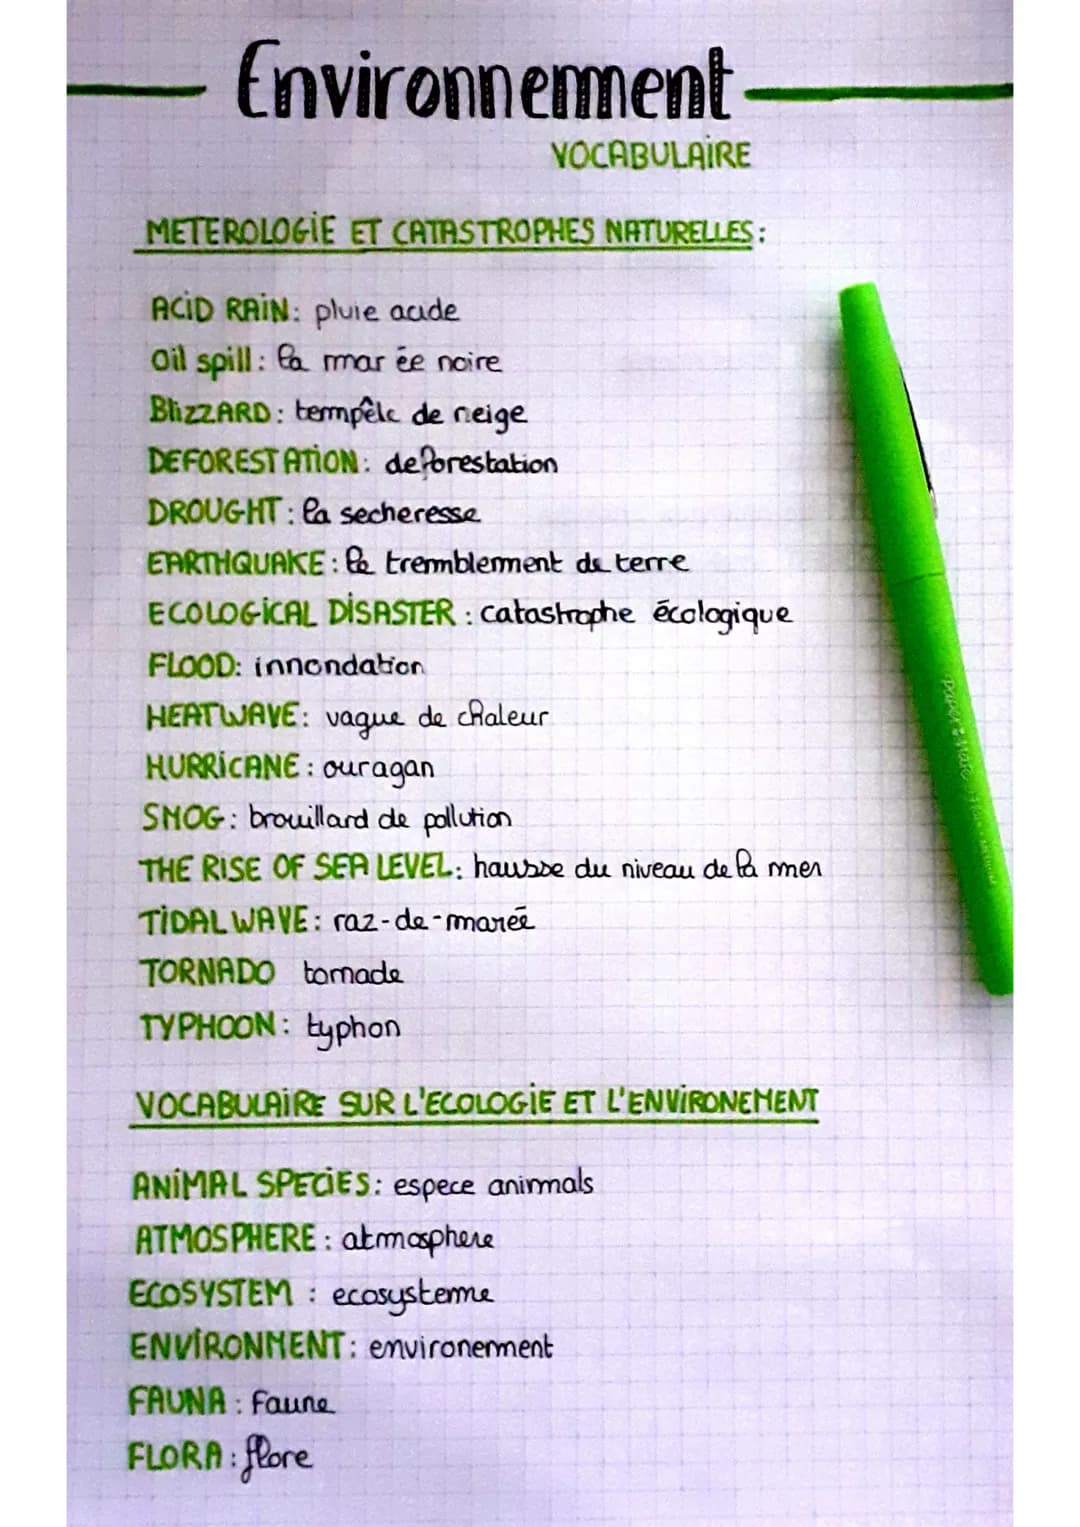 Environnement
VOCABULAIRE
METEROLOGIE ET CATASTROPHES NATURELLES:
ACID RAIN: pluie acide
Oil spill: la marée noire
BLIZZARD: tempête de neige
DEFORESTATION: deforestation
DROUGHT: la secheresse
EARTHQUAKE: le tremblement de terre
ECOLOGICAL DISASTER: catastrophe écologique
FLOOD: innondation
HEATWAVE: vague de chaleur
HURRICANE: ouragan
SMOG: brouillard de pollution
THE RISE OF SEA LEVEL: hausse du niveau de la mer
TIDAL WAVE: raz-de-marée
TORNADO tornade
TYPHOON: typhon
VOCABULAIRE SUR L'ECOLOGIE ET L'ENVIRONEMENT
ANIMAL SPECIES: espece animals
ATMOSPHERE: atmosphere
ECOSYSTEM: ecosysteme
ENVIRONMENT: environement
FAUNA: Faune
FLORA: flore
paper:mate